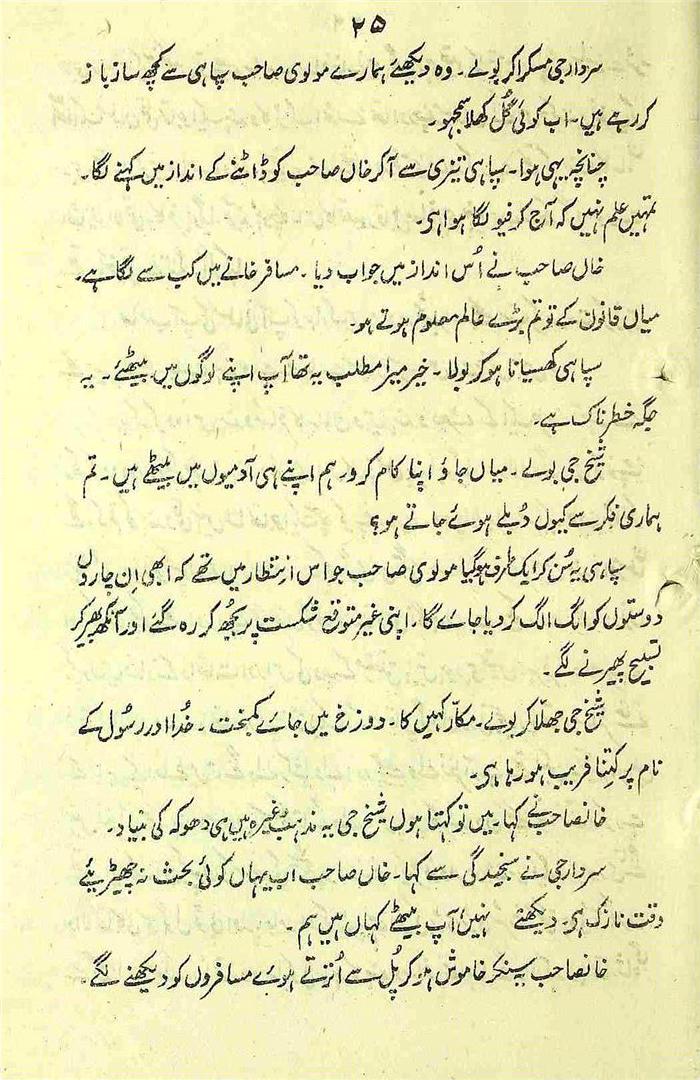 ۲۵
سردارجی مسکرا کر بولے۔ وہ دیکھئے ہمارے مولوی صاحب سپاہی سے کچھ ساز باز
کر رہے ہیں۔ اب کوئی گُل کھلا سمجہو۔
چنانچہ یہی ہوا۔ سپاہی تیزی سے آکر خاں صاحب کو ڈانٹنے کے انداز میں کہنے لگا۔
تمہیں علم نہیں کہ آج کرفیو لگا ہوا ہی۔
خاں صاحب نے اُس انداز میں جواب دیا۔ مسافر خانے میں کب سے لگا ہے۔
میاں قانون کے تو تم بڑے عالم معلوم ہوتے ہو۔
سپاہی کھسیانا ہوکر بولا۔ خیر میرا مطلب یہ تھا آپ اپنے لوگوں میں بیٹھئے۔ یہ
جگہ خطرناک ہے۔
شیخ جی بولے۔ میاں جاؤ اپنا کام کرو۔ ہم اپنے ہی آدمیوں میں بیٹھے ہیں۔ تم
ہماری فکر سے کیوں دُبلے ہوئے جاتے ہو؟
سپاہی یہ سُن کر ایک طرف ہوگیا مولوی صاحب جو اس انتظار میں تھے کہ ابھی اِن چاروں
دوستوں کو الگ الگ کر دیا جائے گا۔ اپنی غیر متوقع شکست پر بجھ کر رہ گئے اور آنکھ پھیر کر
تسبیح پھیرنے لگے۔
شیخ جی جھلّا کر بولے۔ مکّار کہیں کا۔ دوزخ میں جائے کمبخت۔ خُدا اور رسُول کے
نام پر کتِنا فریب ہو رہا ہی۔
خانصاحب نے کہا۔ میں تو کہتا ہوں شیخ جی یہ مذہب وغیرہ ہیں ہی دھوکہ کی بنیاد۔
سردارجی نے سنجیدگی سے کہا۔ خاں صاحب اب یہاں کوئی بحث نہ چھیڑیئے
وقت نازک ہی۔ دیکھتے نہیں آپ بیٹھے کہاں ہیں ہم۔
خانصاحب یہ سنکر خاموش ہوکر پُل سے اُترتے ہوے مسافروں کو دیکھنے لگے۔